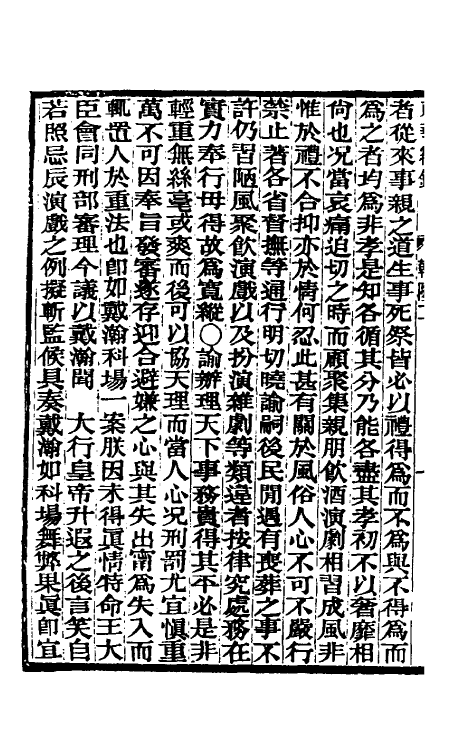 者從來事親之道生事死祭皆必以禮得爲而不爲與不得爲而
爲之者均爲非孝是知各循其分乃能各盡其孝初不以奢靡相
尙也况當哀痛迫切之時而顧聚集親朋飲酒演劇相習成風非
惟於禮不合抑亦於情何忍此甚有關於風俗人心不可不嚴行
禁止著各省督撫等通行明切曉諭嗣後民間遇有喪葬之事不
許仍習陋風聚飲演戲以及扮演雜劇等類違者按律究處務在
實力奉行毋得故爲寬縱○諭辦理天下事務貴得其平必是非
輕重無絲毫或爽而後可以協天理而當人心况刑罰尤宜愼重
萬不可因奉旨發審遂存迎合避嫌之心與其失出甯爲失入而
輒置人於重法也卽如戴瀚科場一案朕因未得眞情特命王大
臣會同刑部審理今議以戴瀚聞 大行皇帝升遐之後言笑自
若照忌辰演戲之例擬斬監候具奏戴瀚如科場舞弊果眞卽宜